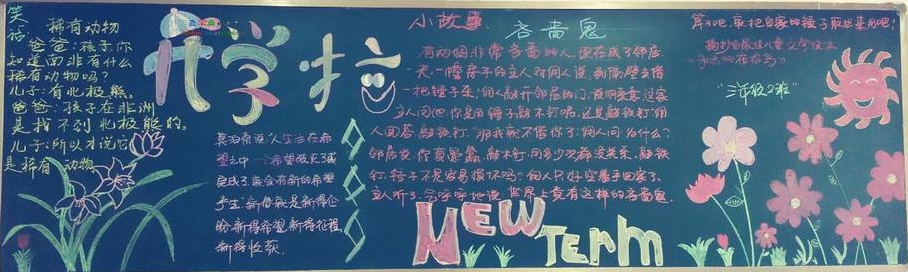 笑话:
稀有动物
爸爸:孩子你
知道南非有什么
稀有动物吗?
儿子:有北极熊。
爸爸:孩子在非洲
是找不到北极熊的。
儿子:所以才说它
是稀有动物
开学啦
莫泊桑说:"人生活在希
望之中一个希望破灭了或
实现了,就会有新的希望
产生,新春就是新得企
盼新得希望,新得征程
新得收获.
小故事
吝啬鬼
有两个非常吝啬的人,更在成了邻居
一把锤子来,佣人敲开邻居的门,说明来意,这家
主人问他你是用锤子敲木钉呢,还是敲铁钉佣
人回答:敲铁钉."那我就不借你了"佣人问:为什么?
钉锤子不是容易损坏吗?佣人只好空着手回家了.
主人听了,气呼呼地说:世界上竟有这样的吝啬鬼
算了吧,就把自家的锤子取出来用吧!
"三年级2班"
NEW
TERM